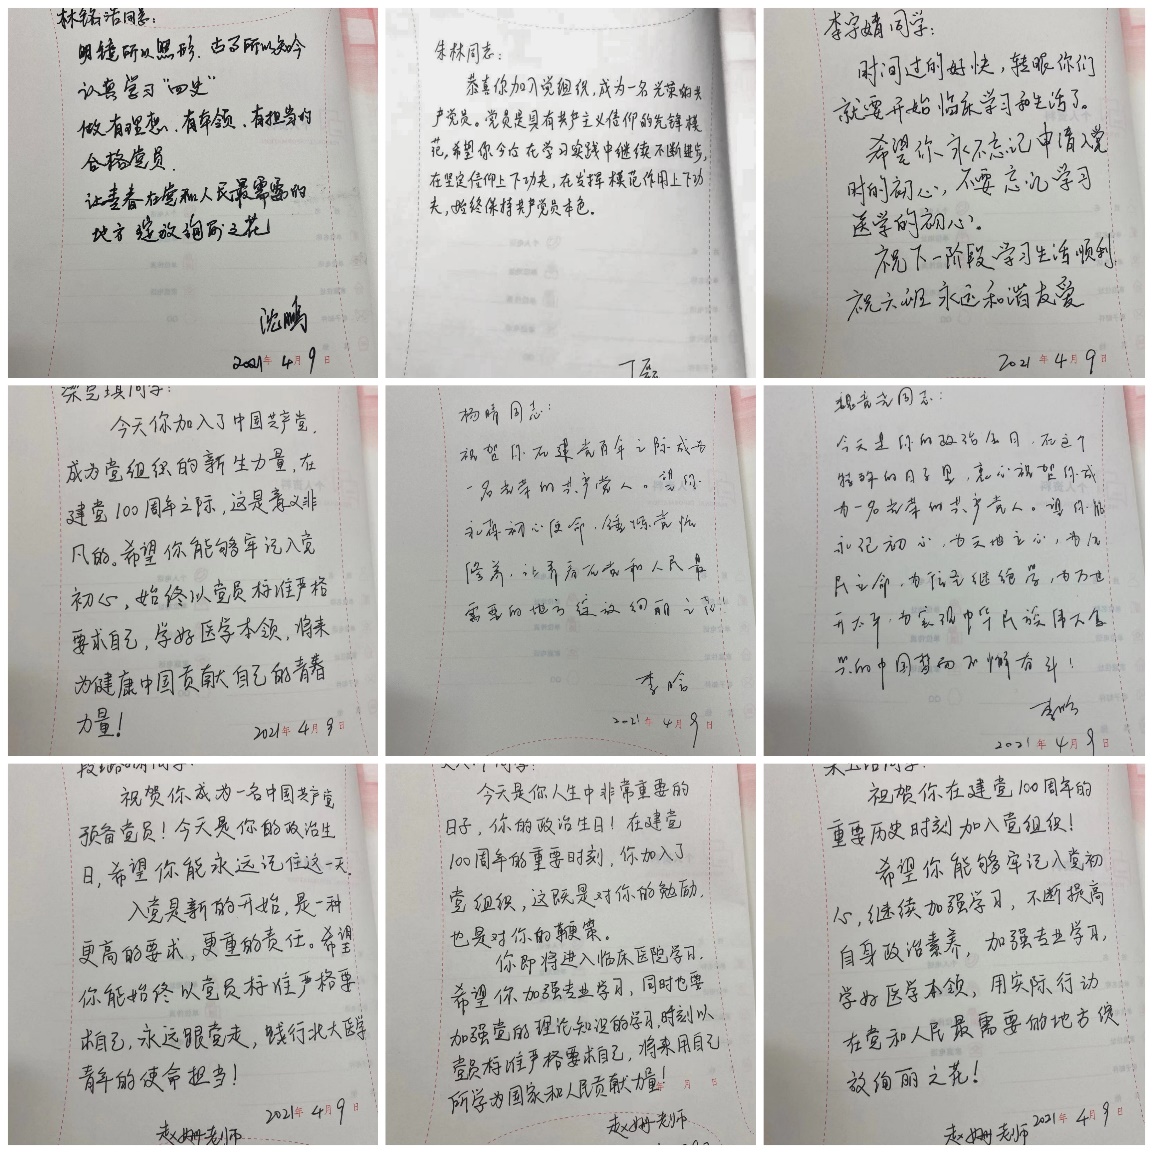 林铭洁同志:
明镜所以照形,古了所以知今
认真学习"四史"
做有理想、有本领、有担当的
合格党员.
让青春在党和人民最需要的
地方 绽放绚丽之花
沈鹏
2021年 4月 9日
朱林同志:
恭喜你加入党组织,成为一名光荣的共
产党员。党员是具有共产主义信仰的先锋模
范,希望你今后在学习实践中继续不断进步,
在坚定信仰上下功夫,在发挥模范作用上下功
夫,始终保持共产党员本色。
丁磊
李宇婧同学:
时间过的好快,转眼你们
就要开始临床学习和生活了。
希望你永不忘记申请入党
时的初心,不要忘记学习
医学的初心。
祝下一阶段学习生活顺利
祝六班永远和谐友爱
2021年 4月 9日
今天你加入了中国共产党,
成为党组织的新生力量,在
建党100周年之际,这是意义非
凡的。希望你能够牢记入党
初心,始终以党员标准严格
要求自己,学好医学本领,将来
为健康中国贡献自己的青春
力量!
2021年 4月 9日
杨晴同志:
祝贺你在建党百年之际成为
一名光荣的共产党人。望你
永葆初心使命,锤炼党性
修养,让青春在党和人民最
需要的地方绽放绚丽之花!
李晗
2021年 4月 9日
同志:
今天是你的政治生日,在这个
特殊的日子里,衷心祝贺你成
为一名光荣的共产党人。望你能
永记初心,为天地立心,为生
民立命,为往圣继绝学,为万世
开太平,为实现中华民族伟大复
兴的中国梦而不懈奋斗!
李晗
2021年 4月 9日
祝贺你成为一名中国共产党
预备党员!今天是你的政治生
日,希望你能永远记住这一天.
入党是新的开始,是一种
更高的要求,更重的责任。希望
你能始终以党员标准严格要
求自己,永远跟党走,践行北大医学
青年的使命担当!
2021年 4月 9日
赵姗老师
今天是你人生中非常重要的
日子,你的政治生日!在建党
100周年的重要时刻,你加入了
党组织,这既是对你的勉励,
也是对你的鞭策。
你即将进入临床医院学习,
希望你加强专业学习,同时也要
加强党的理论知识的学习,时刻以
党员标准严格要求自己,将来用自己
所学为国家和人民贡献力量!
年 月 日
赵姗老师
祝贺你在建党100周年的
重要历史时刻加入党组织!
希望你能够牢记入党初
心,继续加强学习,不断提高
自身政治素养,加强专业学习,
学好医学本领,用实际行动
在党和人民最需要的地方绽
放绚丽之花!
2021年 4月 9日
赵姗老师